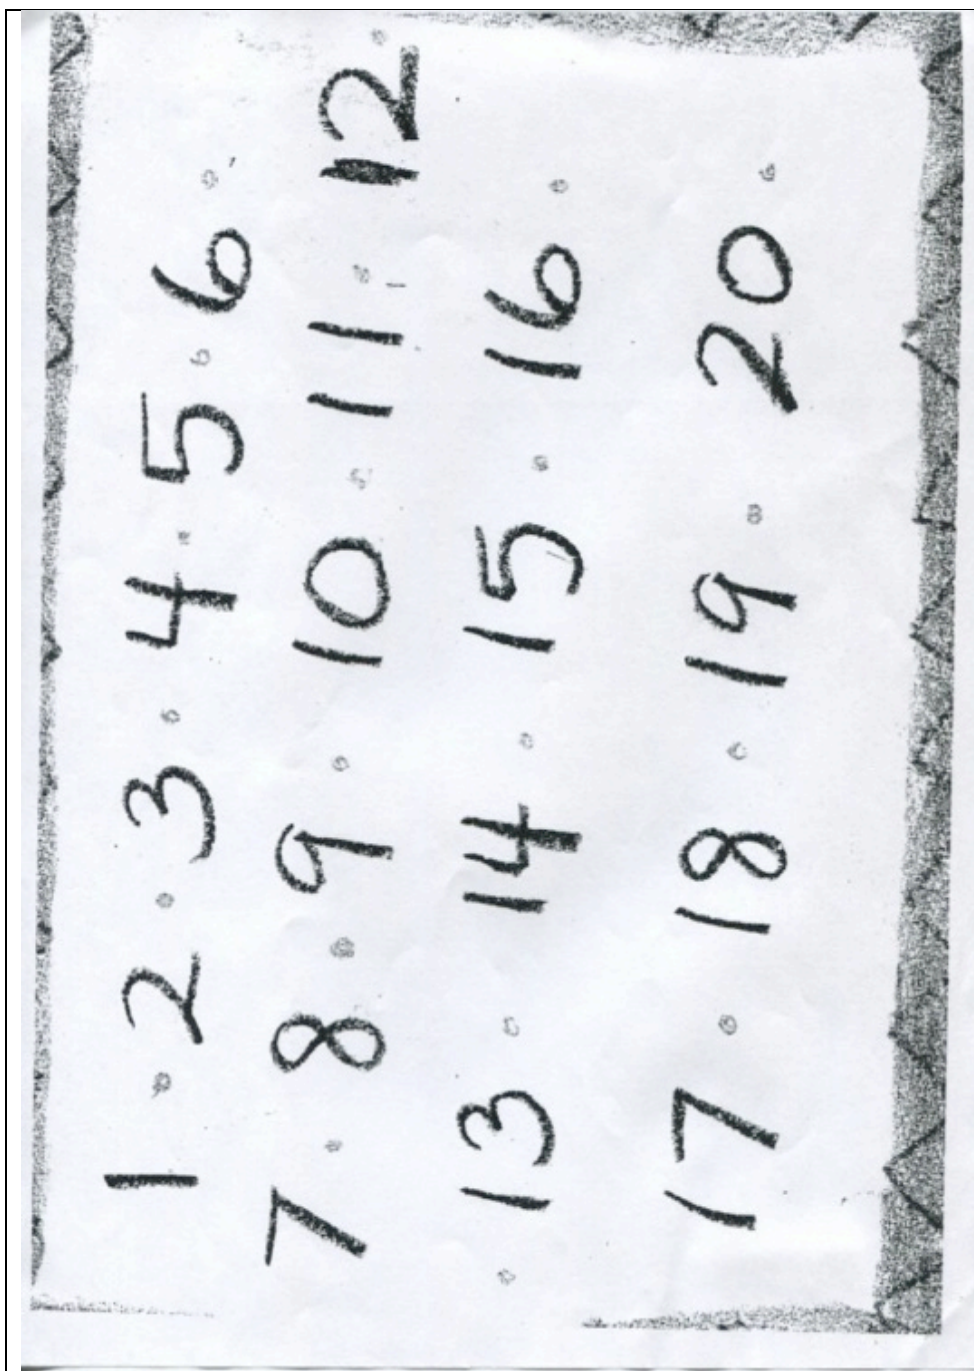 1 2 3 4 5 6
7 8 9 10 11 12
13 14 15 16
17 18 19 20